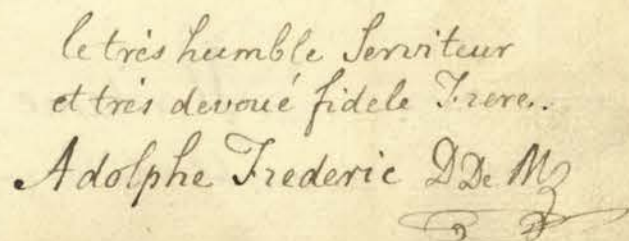 le très humble Serviteur
et très devoué fidele Frere..
Adolphe Frederic D De M